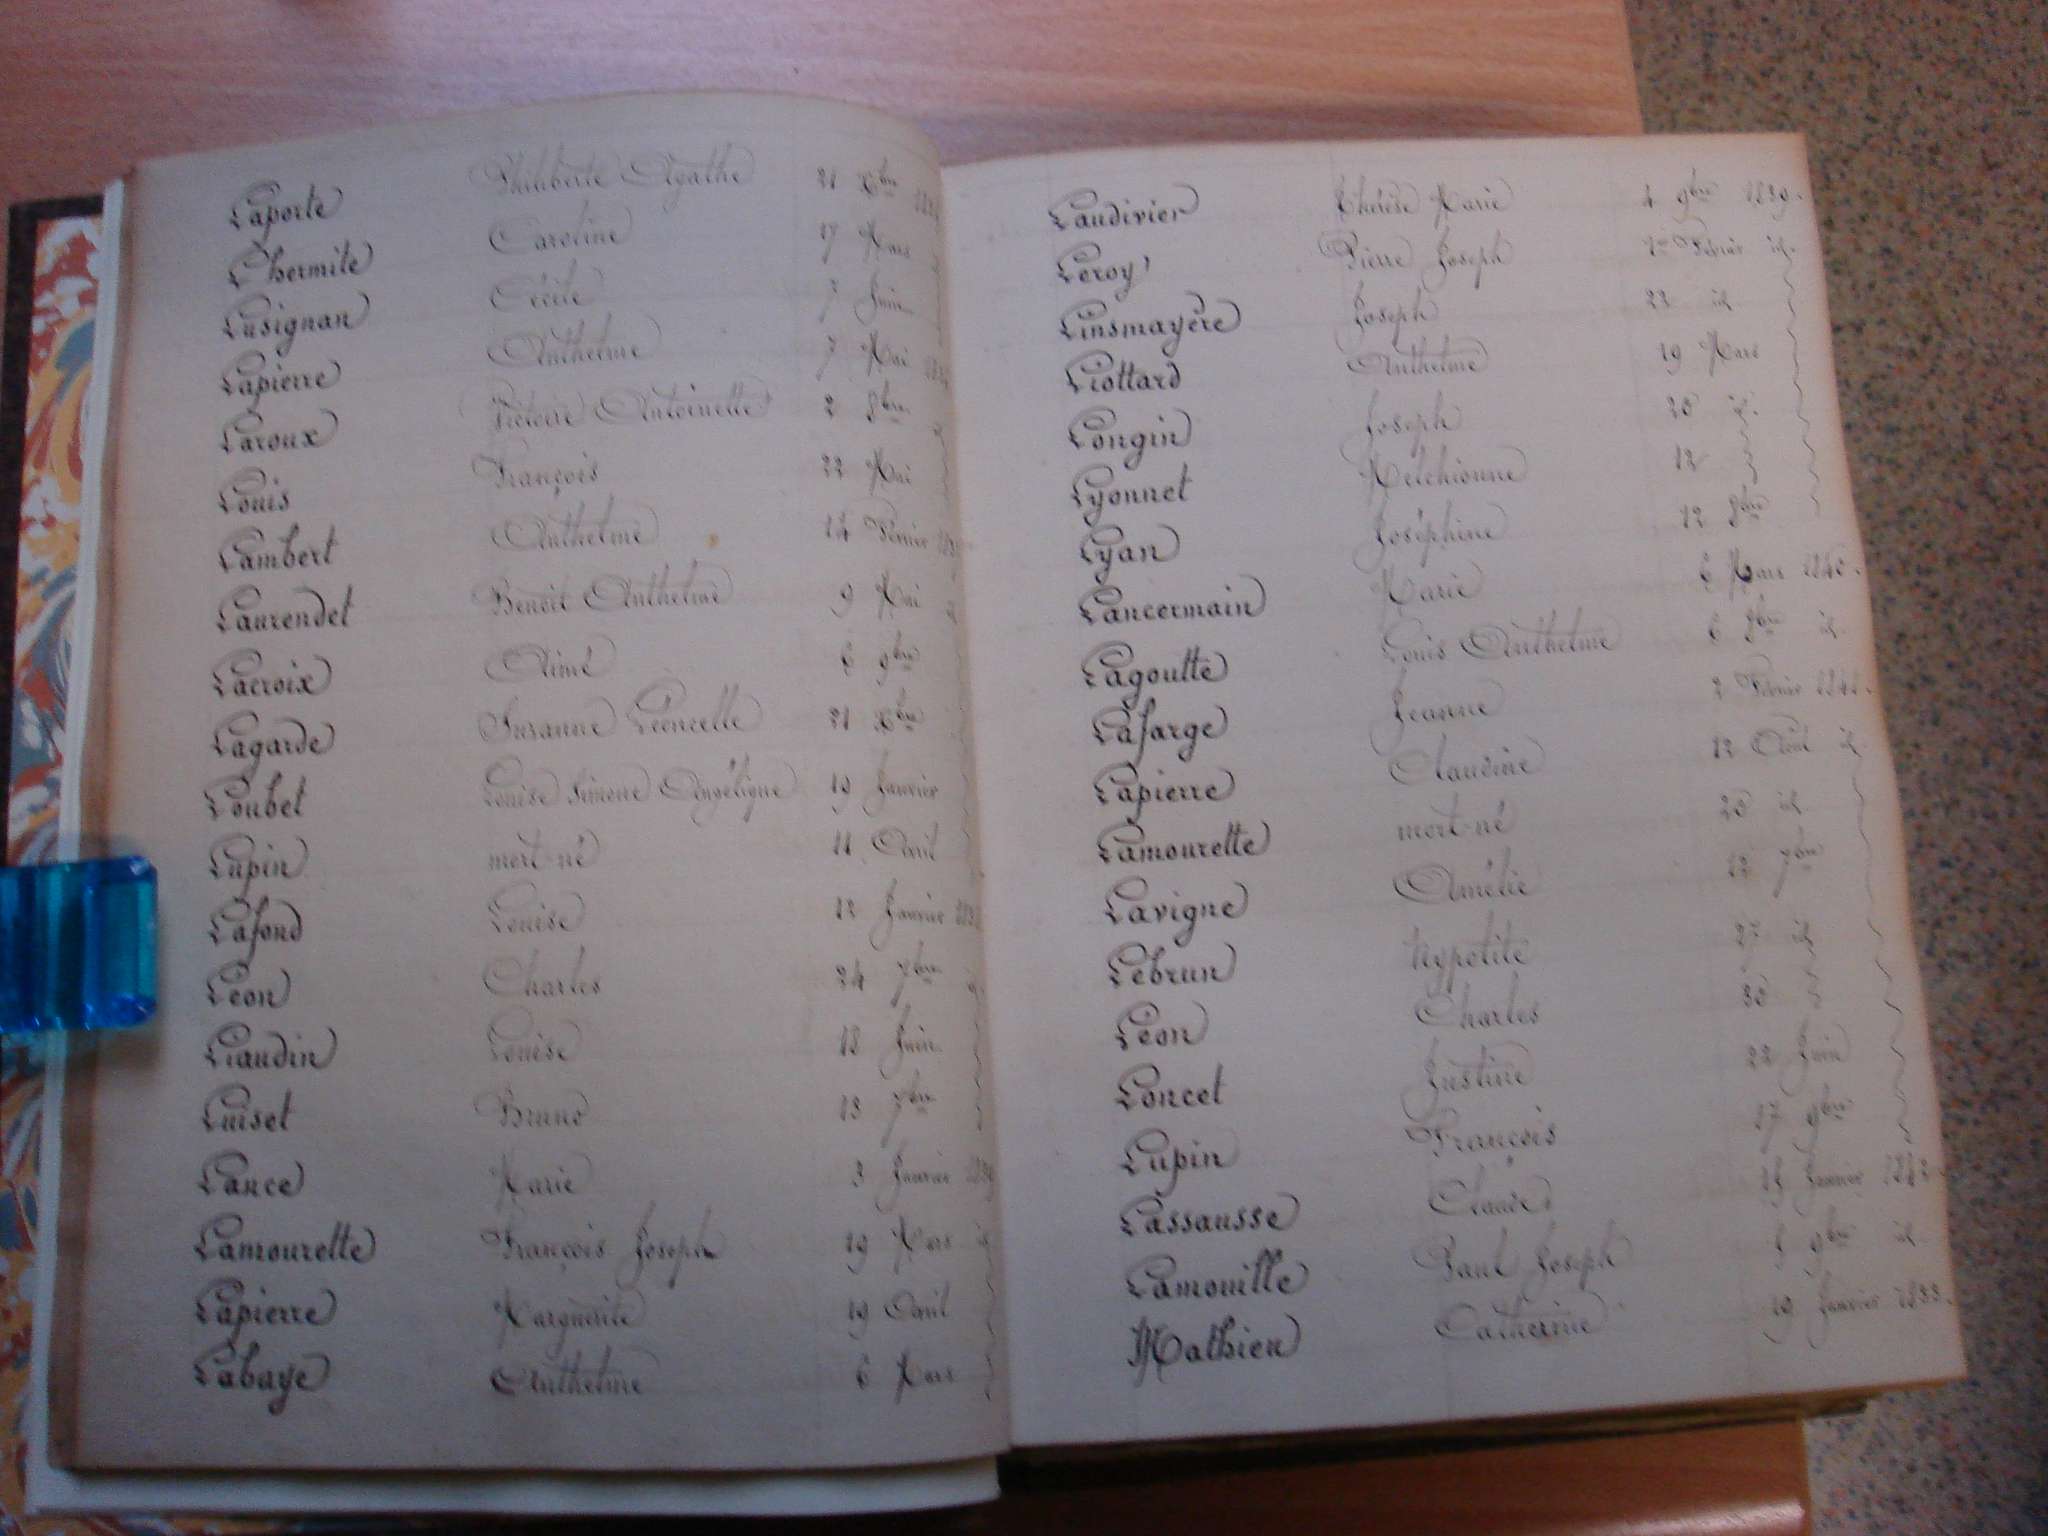 Laporte Philiberte Agathe 21 Xbre
L'hermite Caroline 17 Mars
Lusignan Cécile 7 Juin
Lapierre Anthelme 7 Mai
Laroux Victoire Antoinette 2 8bre
Louis François 22 Mai
Lambert Anthelme 14 Février
Laurendet Benoit Anthelme 9 Mai
Lacroix Aimé 6 9bre
Lagarde Suzanne Léoncelle 21 Xbre
Loubet Louise Simone Angélique 19 Janvier
Lupin mort-né 11 Avril
Lafond Louise 12 Janvier
Léon Charles 24 7bre
Liaudin Louise 18 Juin
Luiset Bruno 13 7bre
Lance Marie 3 Janvier 1839
Lamourette François Joseph 19 Mars id
Lapierre Marguerite 19 Avril
Labaye Anthelme 6 Mars
Laudivier Thérèse Marie 4 9bre 1839.
Leroy Pierre Joseph 1er Février id.
Linsmayère Joseph 22 id
Liottard Anthelme 19 Mars
Longin Joseph 20 id.
Lyonnet Melchionne 12
Lyan Joséphine 12 8bre
Lancermain Marie 6 Mars 1840.
Lagoutte Louis Anthelme 6 8bre id.
Lafarge Jeanne 2 Février 1841.
Lapierre Claudine 12 Août id.
Lamourette mort-né 20 id.
Lavigne Amélie 12 7bre
Lebrun hypolite 27 id
Léon Charles 30
Loncet Justine 22 Juin
Lupin François 17 9bre
Lassausse Claude 15 Janvier 1842.
Lamouille Paul Joseph 9bre id.
Mathieu Catherine 19 Janvier 1833.